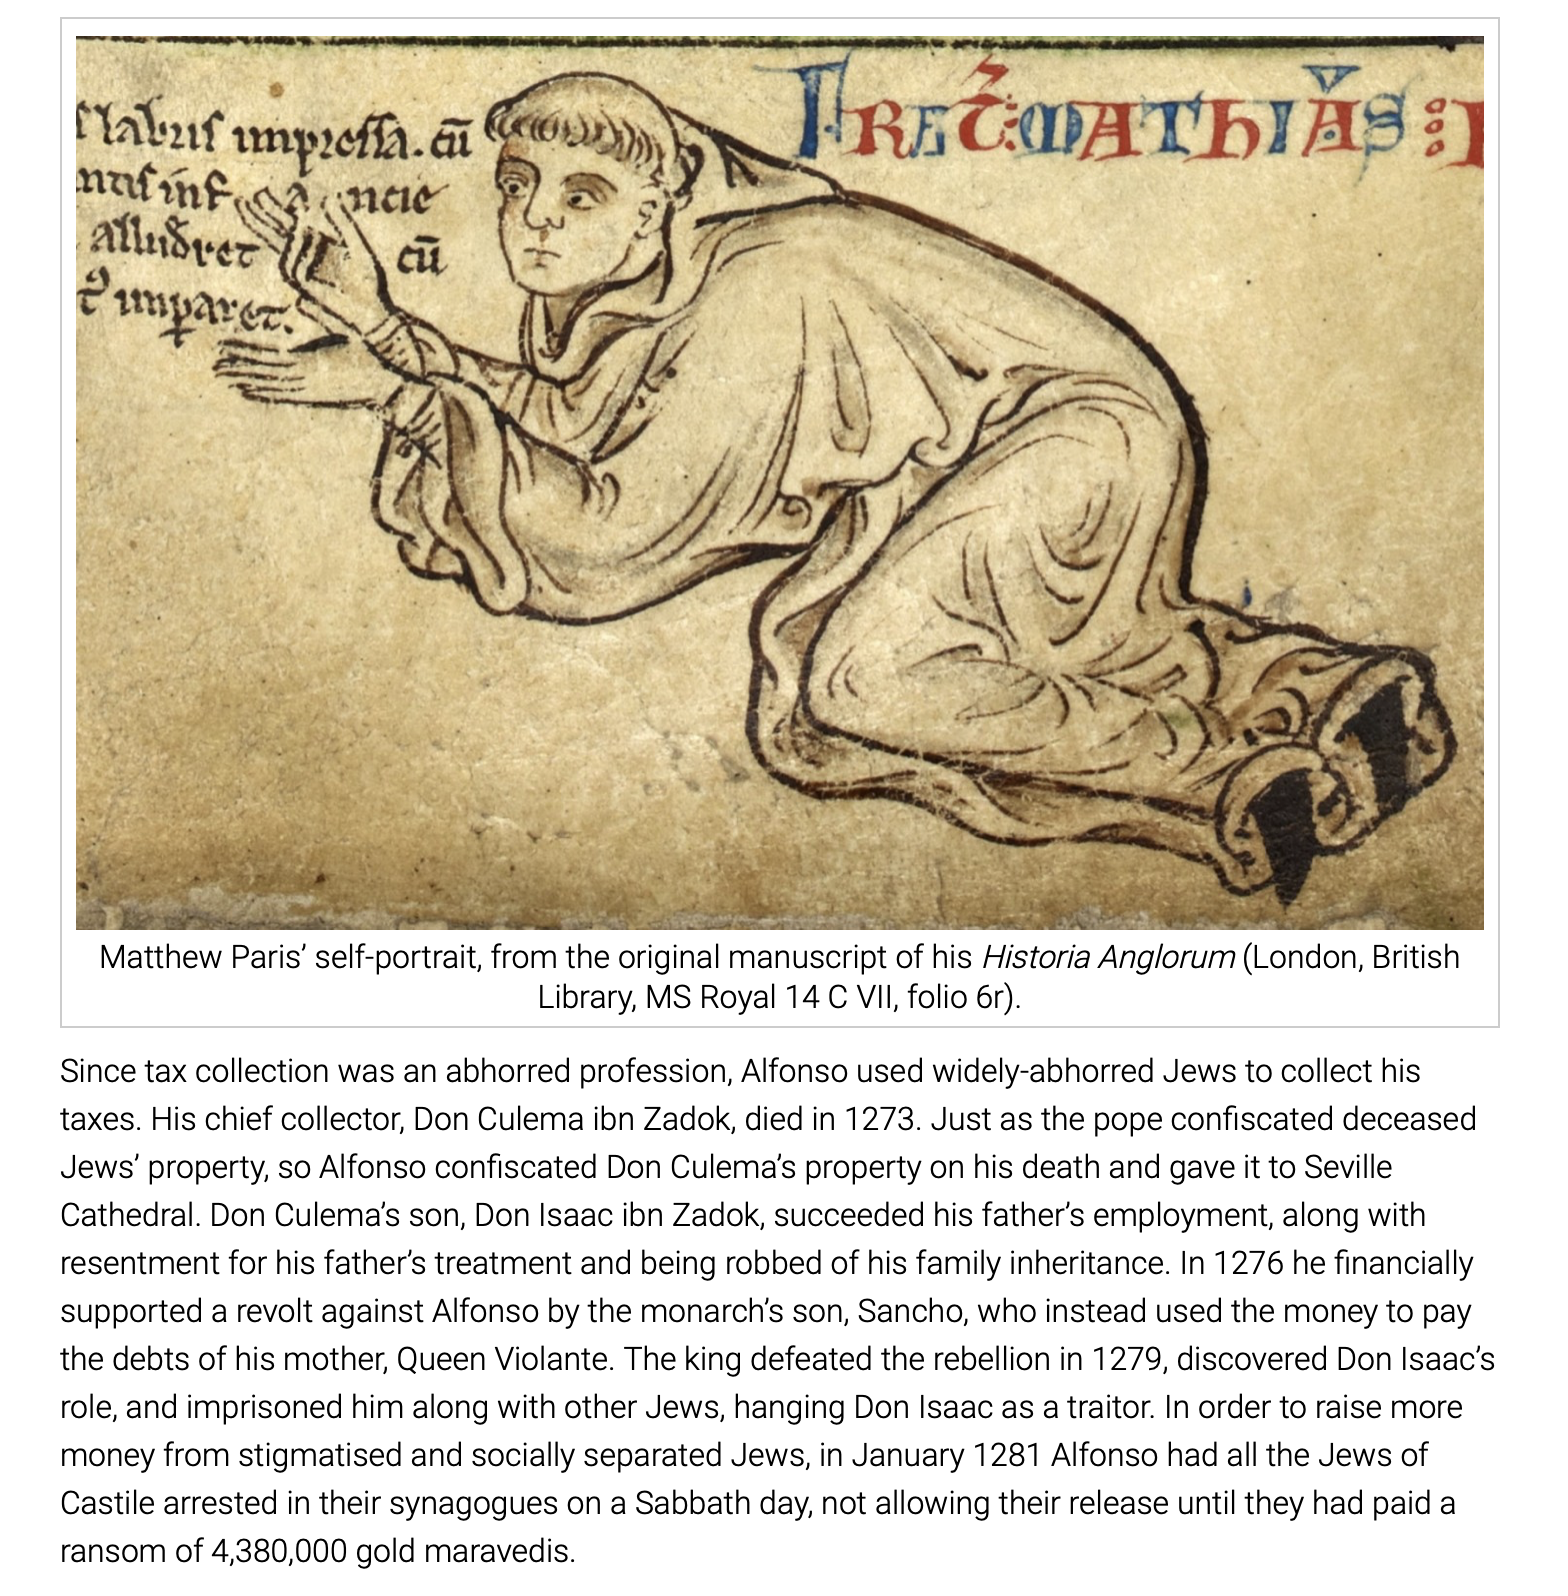 FRAT̃: MATHIAS
labiis impressa. cū
alludret cū
Matthew Paris’ self-portrait, from the original manuscript of his Historia Anglorum (London, British
Library, MS Royal 14 C VII, folio 6r).
Since tax collection was an abhorred profession, Alfonso used widely-abhorred Jews to collect his
taxes. His chief collector, Don Culema ibn Zadok, died in 1273. Just as the pope confiscated deceased
Jews’ property, so Alfonso confiscated Don Culema’s property on his death and gave it to Seville
Cathedral. Don Culema’s son, Don Isaac ibn Zadok, succeeded his father’s employment, along with
resentment for his father’s treatment and being robbed of his family inheritance. In 1276 he financially
supported a revolt against Alfonso by the monarch’s son, Sancho, who instead used the money to pay
the debts of his mother, Queen Violante. The king defeated the rebellion in 1279, discovered Don Isaac’s
role, and imprisoned him along with other Jews, hanging Don Isaac as a traitor. In order to raise more
money from stigmatised and socially separated Jews, in January 1281 Alfonso had all the Jews of
Castile arrested in their synagogues on a Sabbath day, not allowing their release until they had paid a
ransom of 4,380,000 gold maravedis.